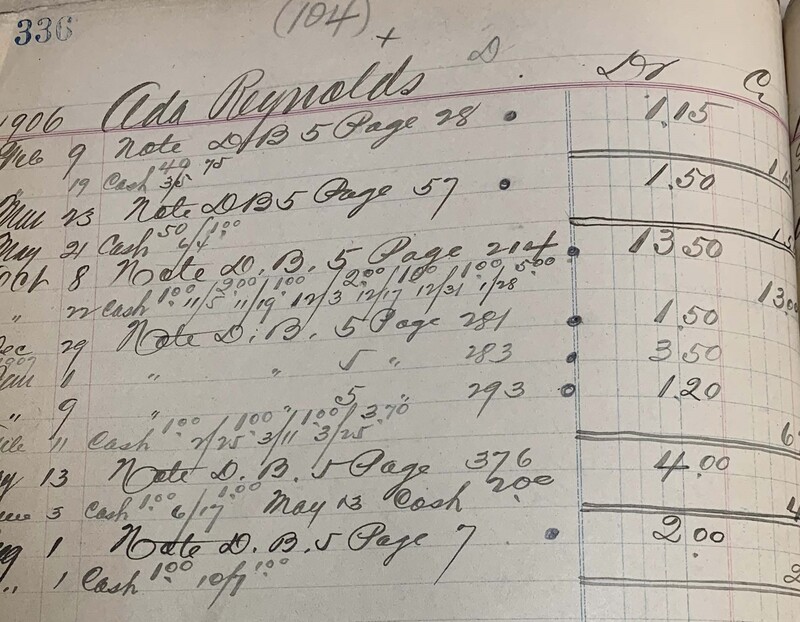 336 (104) +
Ada Reynolds D. Dr Cr
1906
Feb 9 Note D.B 5 Page 28 1.15
19 Cash 40 3/5 75
Mar 23 Note D B 5 Page 57 1.50
May 21 Cash 50 6/4 1.00
Oct 8 Note D. B. 5 Page 214 13.50
" 22 Cash 1.00 11/5 2.00 11/19 1.00 12/3 2.00 12/17 1.00 12/31 1.00 1/28 5.00 13.0
Dec 29 Note D. B. 5 Page 281 1.50
1907
Jan 1 " " 5 " 283 3.50
" 9 " " 5 " 293 1.20
11 Cash 1.00 2/25 1.00 3/11 1.00 3/25 3.70 6
13 Note D. B. 5 Page 376 4.00
3 Cash 1.00 6/17 1.00 May 13 Cash 2.00 4
1 Note D. B. 5 Page 7 2.00
" 1 Cash 1.00 10/7 1.00 2